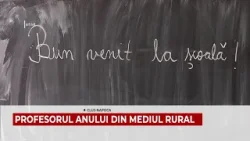 Bun venit la școală!
CLUJ-NAPOCA
PROFESORUL ANULUI DIN MEDIUL RURAL